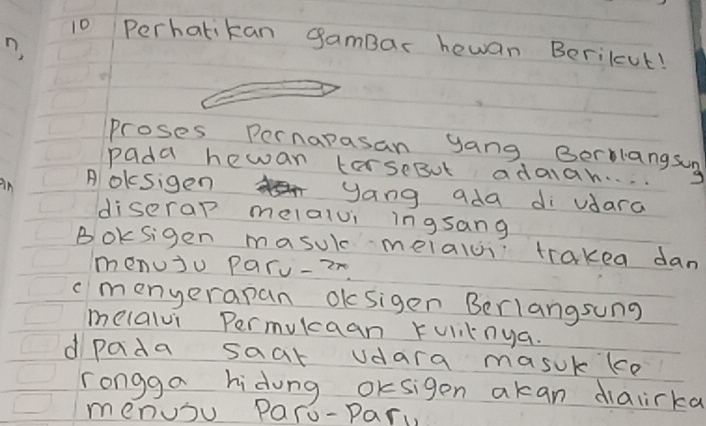 10 Perhatikan gamBar hewan Berikut!
n,
proses Pernapasan yang Berlangsung
pada hewan terseBut adalah....
A oksigen yang ada di udara
diserap melalui ingsang
B oksigen masuk melalui trakea dan
menuju paru-2n.
c menyerapan oksigen Berlangsung
melalui Permukaan kulitnya.
d pada saat udara masuk ke
rongga hidung oksigen akan dialirka
menuju paru-paru